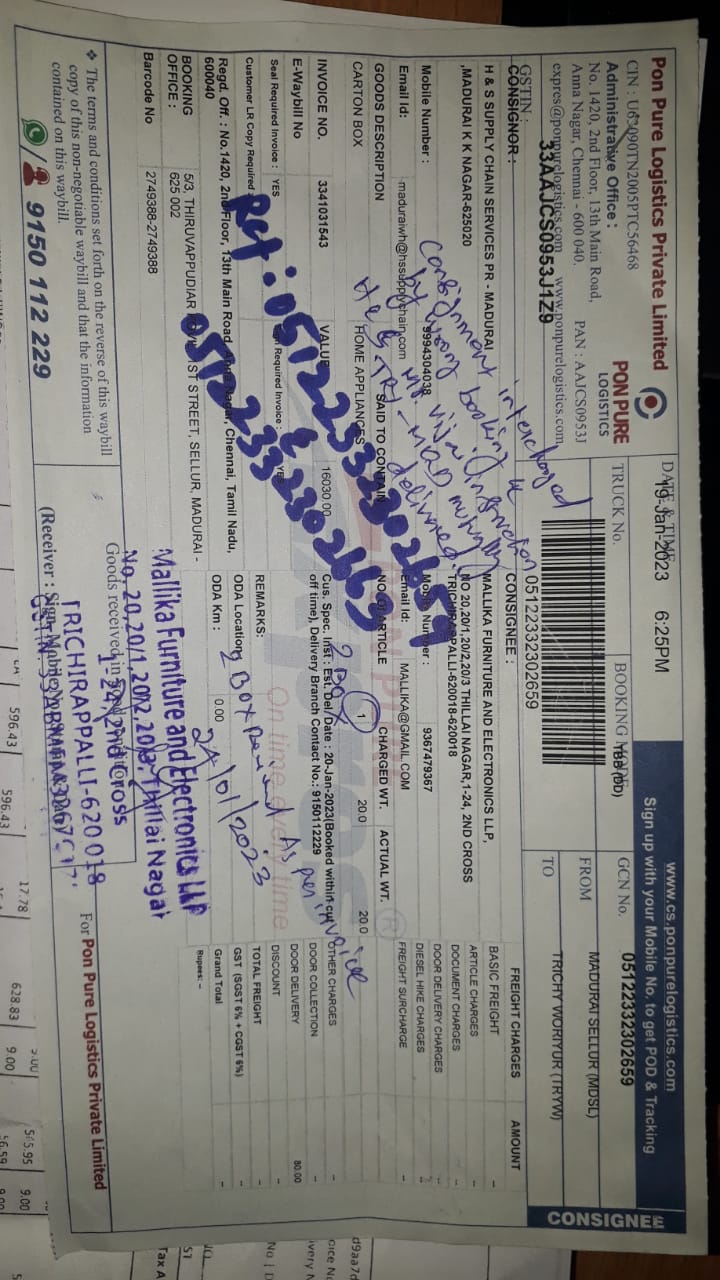 Pon Pure Logistics Private Limited
CIN : U63090TN2005PTC56468
Administrative Office :
No. 1420, 2nd Floor, 13th Main Road,
Anna Nagar, Chennai - 600 040. PAN : AAJCS0953J
expres@ponpurelogistics.com www.ponpurelogistics.com
GSTIN : 33AAJCS0953J1Z9
PON PURE
LOGISTICS
DATE & TIME
19-Jan-2023 6:25PM
TRUCK No.
BOOKING MODE
TBB (DD)
www.cs.ponpurelogistics.com
Sign up with your Mobile No. to get POD & Tracking
GCN No. 05122332302659
FROM MADURAI SELLUR (MDSL)
TO TRICHY WORIYUR (TRYW)
05122332302659
CONSIGNEE
CONSIGNOR :
H & S SUPPLY CHAIN SERVICES PR - MADURAI
,MADURAI K K NAGAR-625020
Mobile Number : 9994304038
Email Id: maduraiwh@hssupplychain.com
CONSIGNEE :
MALLIKA FURNITURE AND ELECTRONICS LLP,
NO 20,20/1,20/2,20/3 THILLAI NAGAR,1-24, 2ND CROSS
TRICHIRAPPALLI-620018-620018
Mobile Number : 9367479367
Email Id: MALLIKA@GMAIL.COM
GOODS DESCRIPTION SAID TO CONTAIN NO.OF ARTICLE CHARGED WT. ACTUAL WT.
CARTON BOX HOME APPLIANCES 1 20.0 20.0
INVOICE NO. 3341031543 VALUE 16030.00
E-Waybill No
Seal Required Invoice : YES Sign Required Invoice : YES
Customer LR Copy Required
Regd. Off. : No.1420, 2nd Floor, 13th Main Road, Anna Nagar, Chennai, Tamil Nadu,
600040
BOOKING OFFICE : 5/3, THIRUVAPPUDIAR 1ST STREET, SELLUR, MADURAI -
625 002
Barcode No 2749388-2749388
Cus. Spec. Inst : Est. Del Date : 20-Jan-2023(Booked within cut
off time), Delivery Branch Contact No.: 9150112229
REMARKS:
ODA Location
ODA Km : 0.00
FREIGHT CHARGES AMOUNT
BASIC FREIGHT -
ARTICLE CHARGES -
DOCUMENT CHARGES -
DOOR DELIVERY CHARGES -
DIESEL HIKE CHARGES -
FREIGHT SURCHARGE -
OTHER CHARGES -
DOOR COLLECTION -
DOOR DELIVERY 80.00
DISCOUNT -
TOTAL FREIGHT -
GST (SGST 6% + CGST 6%) -
Grand Total -
Rupees: -
Consignment interchanged
by wrong booking &
delivered
Ref : 05122332302659
&
05122332302663
2 Box
2 Box received As per invoice
24/01/2023
On time every time
Mallika Furniture and Electronics LLP
No. 20,20/1,20/2,20/3, Thillai Nagar
1-24, 2nd Cross
TRICHIRAPPALLI-620 018
❖ The terms and conditions set forth on the reverse of this waybill
copy of this non-negotiable waybill and that the information
contained on this waybill.
9150 112 229
For Pon Pure Logistics Private Limited
596.43 596.43 17.78 628.83 9.00 565.95 9.00